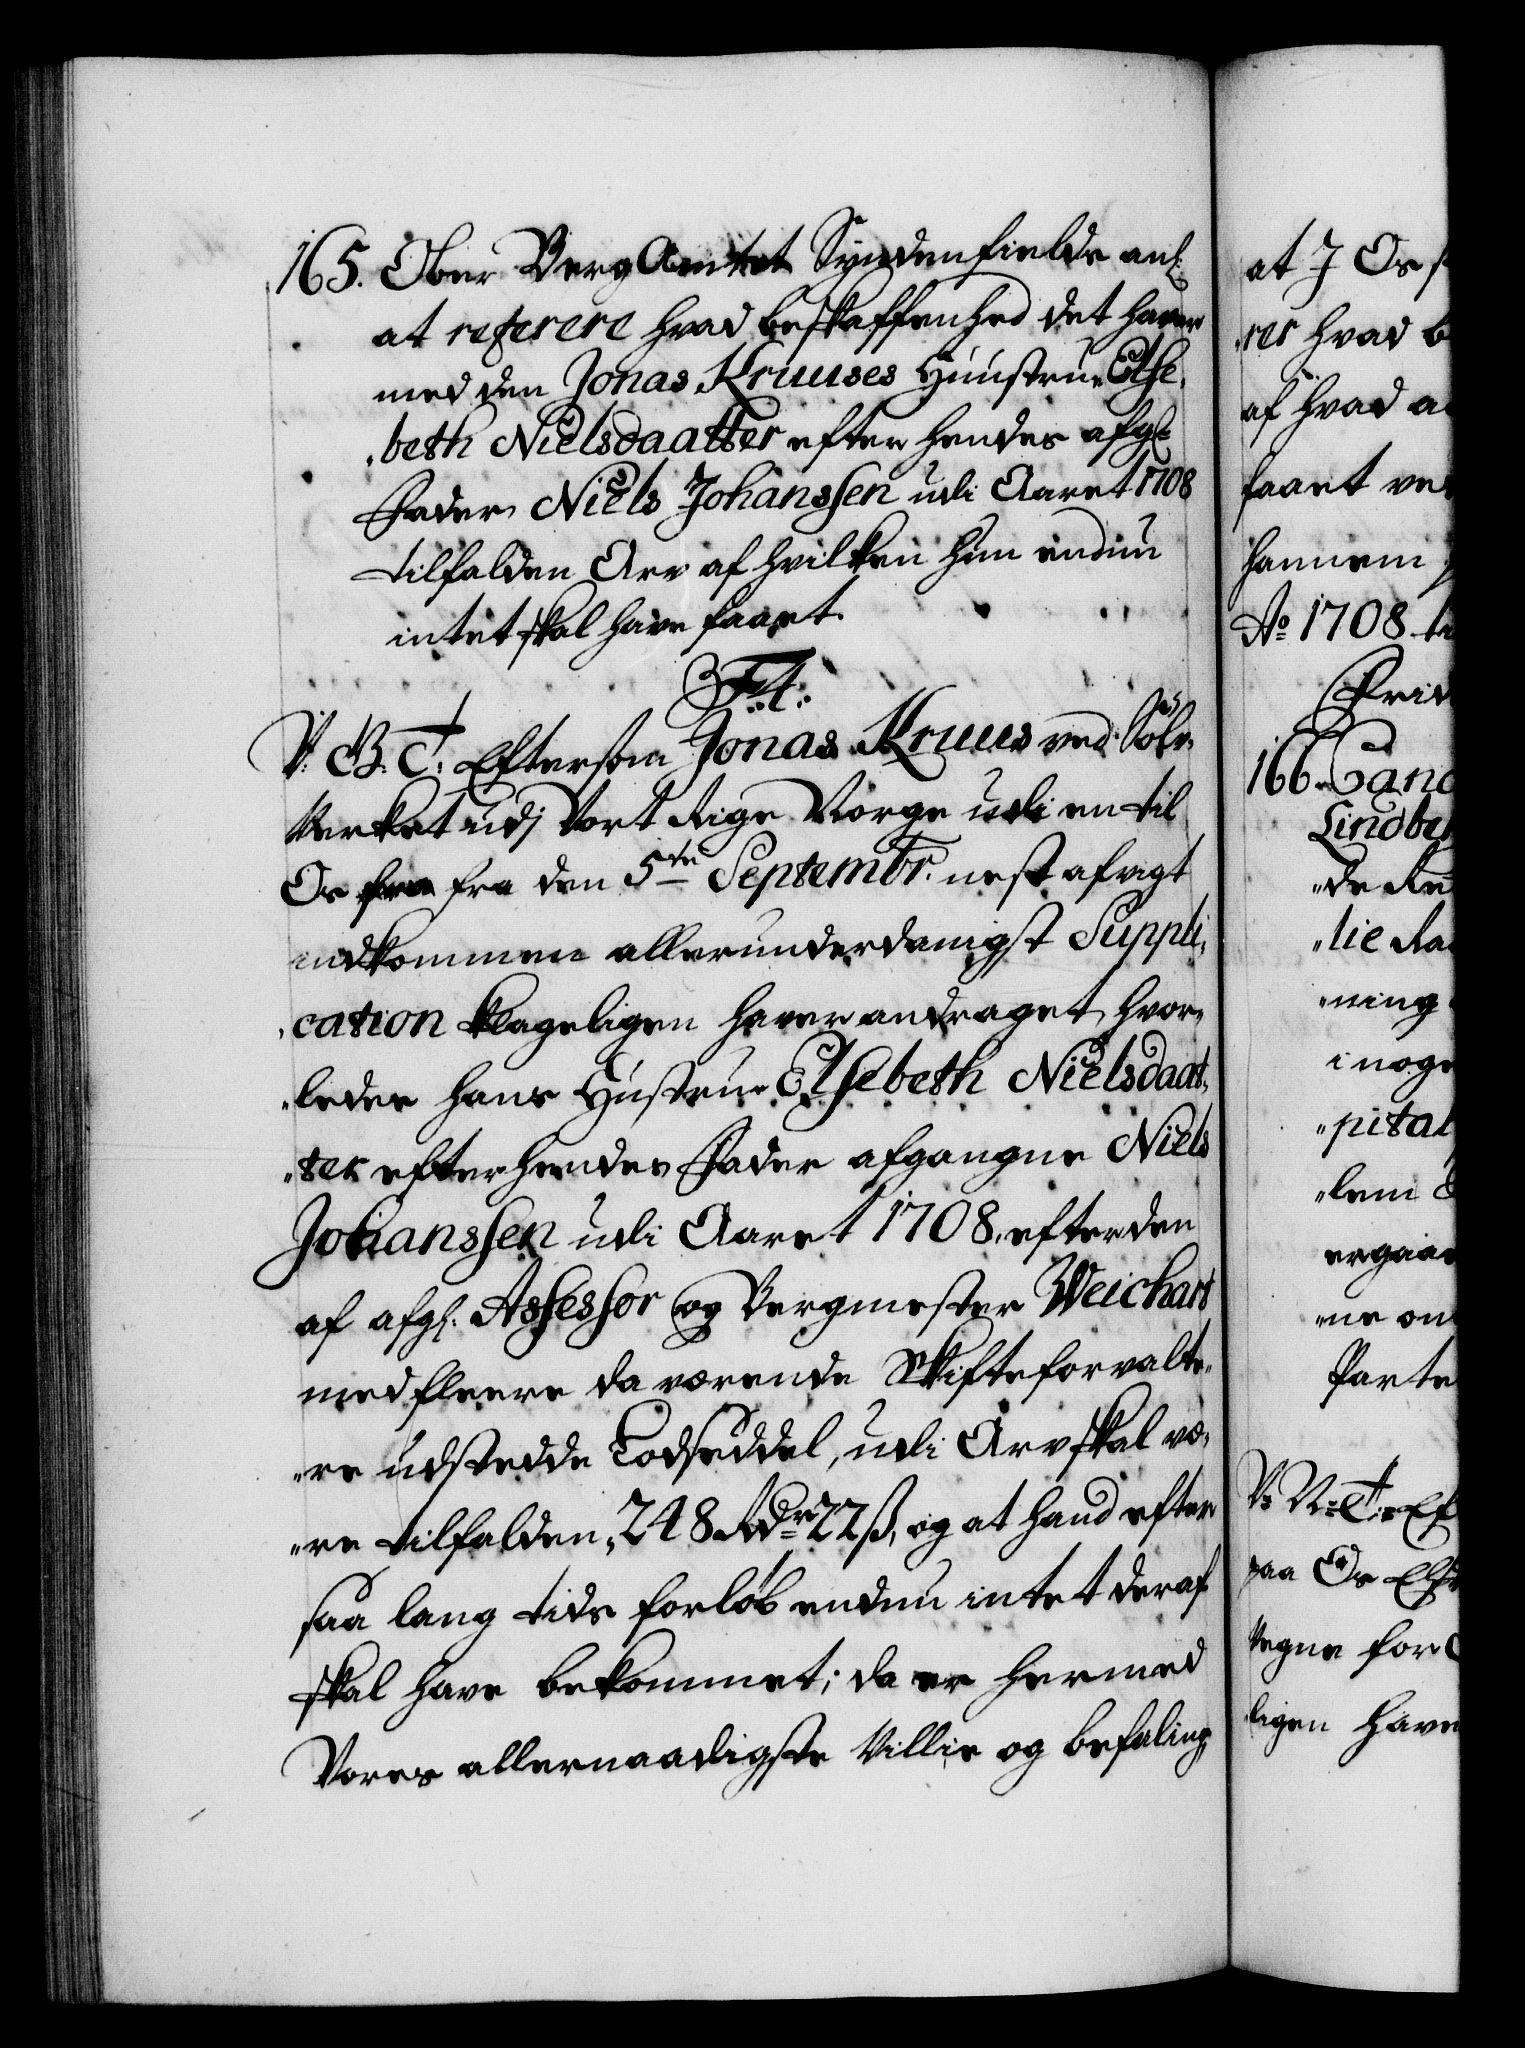 165. Ober Berg Amtet Syndenfields anl:
at referere hvad beskaffenhed det haver
med den Jonas Kruuses Huustrue Else„
„beth Nielsdaatter efter hendes afg:
Fader Niels Johanssen udi Aaret 1708
tilfalden Arv af hvilken hun endnu
intet skal have faaet.
F. 4.
V: G: T: Eftersom Jonas Kruus ved Sølv„
Verket udj Vort Rige Norge udi en til
Os fra fra den 5te Septembr. nest afvigt
indkommen allerunderdanigst Suppli„
„cation klageligen haver andraget, hvor„
„ledes hans Hustrue Elsebeth Nielsdaat„
„ter efter hendes Fader afgangne Niels
Johanssen udi Aaret 1708, efter den
af afg: Assessor og Bergmester Weichart
med fleere da værende Skifteforvalte„
„re udstedde Lodseddel, udi Arv skal væ„
„re tilfalden, 248 Rdr 22 ß, og at hand efter
saa lang tids forløb endnu intet deraf
skal have bekommet; da er hermed
Vores allernaadigste Villie og befaling
at J Os
„rer hvad b
af hvad a
faaet ve
hannem
Ao 1708 t
166.
Lindbe
„de Re
„lie Ra
„ning
i nog
„pital
„lem
ergaa
„ne om
Parte
V: G: T: Ef
paa Os Els
Vegne for
„ligen have